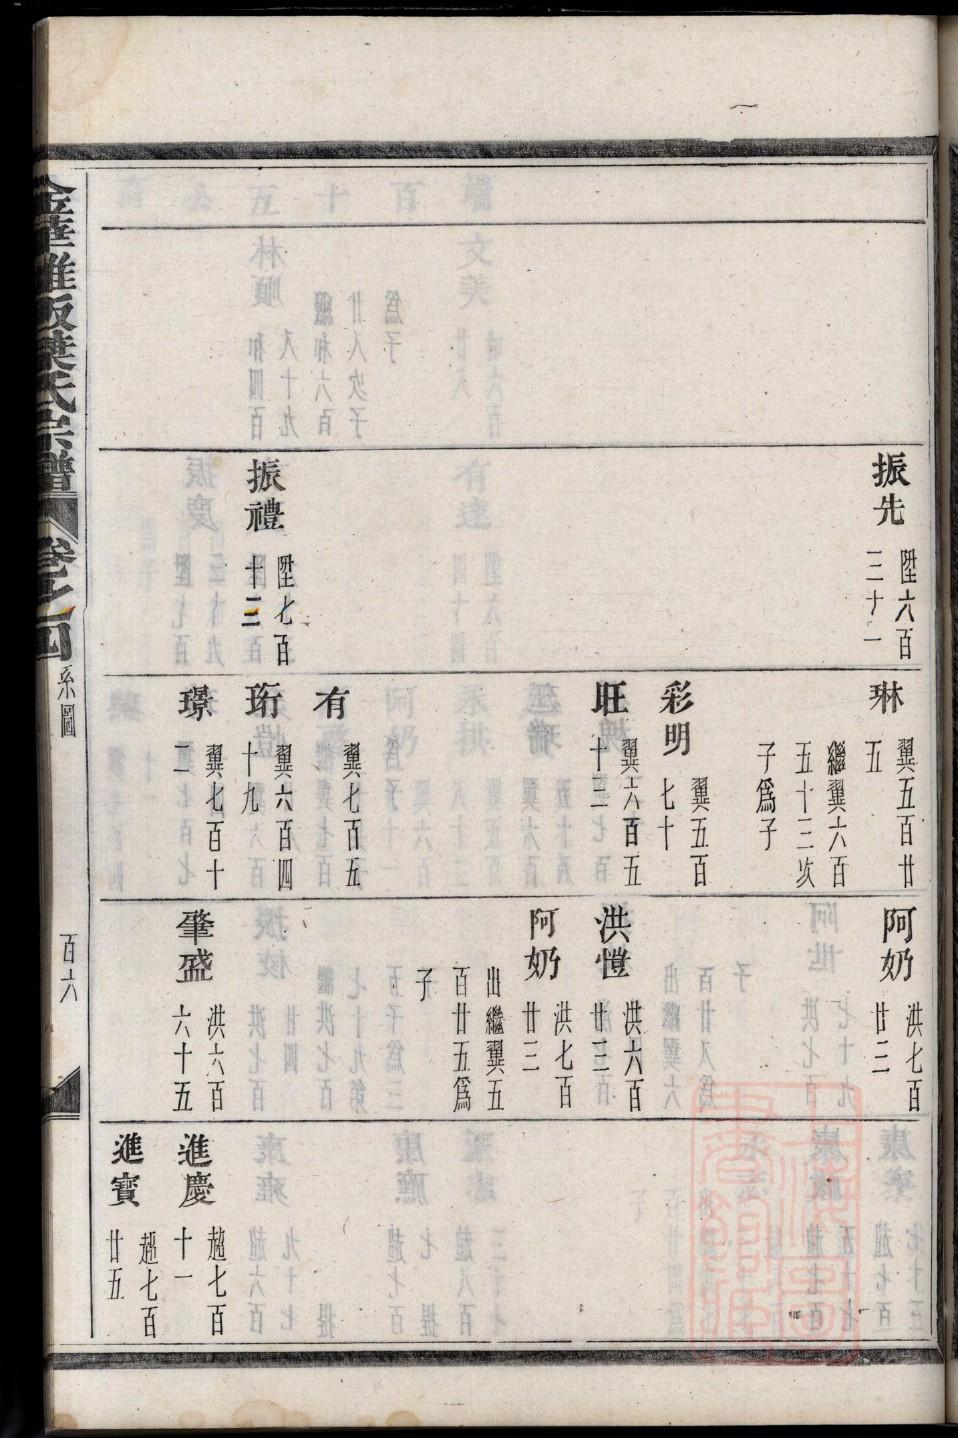 振先
陞六百
三十一
振禮
陞七百
十三
琳
翼五百廿
五
繼翼六百
五十三次
子爲子
彩明
翼五百
七十
旺
翼六百五
十三
有
翼七百五
珩
翼六百四
十九
璟
翼七百十
二
阿奶
洪七百
廿三
洪愷
洪六百
廿三
阿奶
洪七百
廿三
出繼翼五
百廿五爲
子
肇盛
洪六百
六十五
進慶
趙七百
十一
進寶
趙七百
廿五
葉氏宗譜
卷之四
系圖
百六